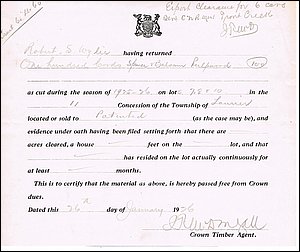 Export Clearance for 6 cars
Robert S. Wyder
having returned
One hundred Cords Spruce & Balsam Pulpwood 100
as cut during the season of 1925-26 on lot 7 E 1/2 10 in the
11 Concession of the Township of Laurier
located or sold to Patented (as the case may be), and
evidence under oath having been filed setting forth that there are
acres cleared, a house feet on the lot, and that
has resided on the lot actually continuously for
at least months.
This is to certify that the material as above, is hereby passed free from Crown
dues.
Dated this 26th day of January 1926
Crown Timber Agent.